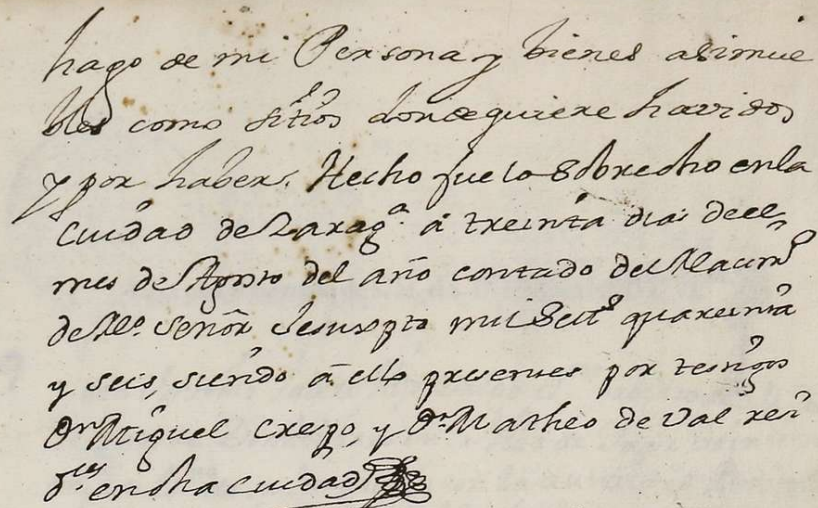 hago de mi Persona y bienes asi mue
bles como sitios donde quiere havidos
y por haber. Hecho fue lo Sobredho en la
Ciudad de Zarag.ª á treinta dias de el
mes de Agosto del año contado del Nacim.to
de N.º Señor Jesuxpto mil Set.s quarenta
y seis, siendo á ello presentes por testigos
D.n Miguel Crespo, y D.n Matheo de Val resi
d.tes en dha Ciudad